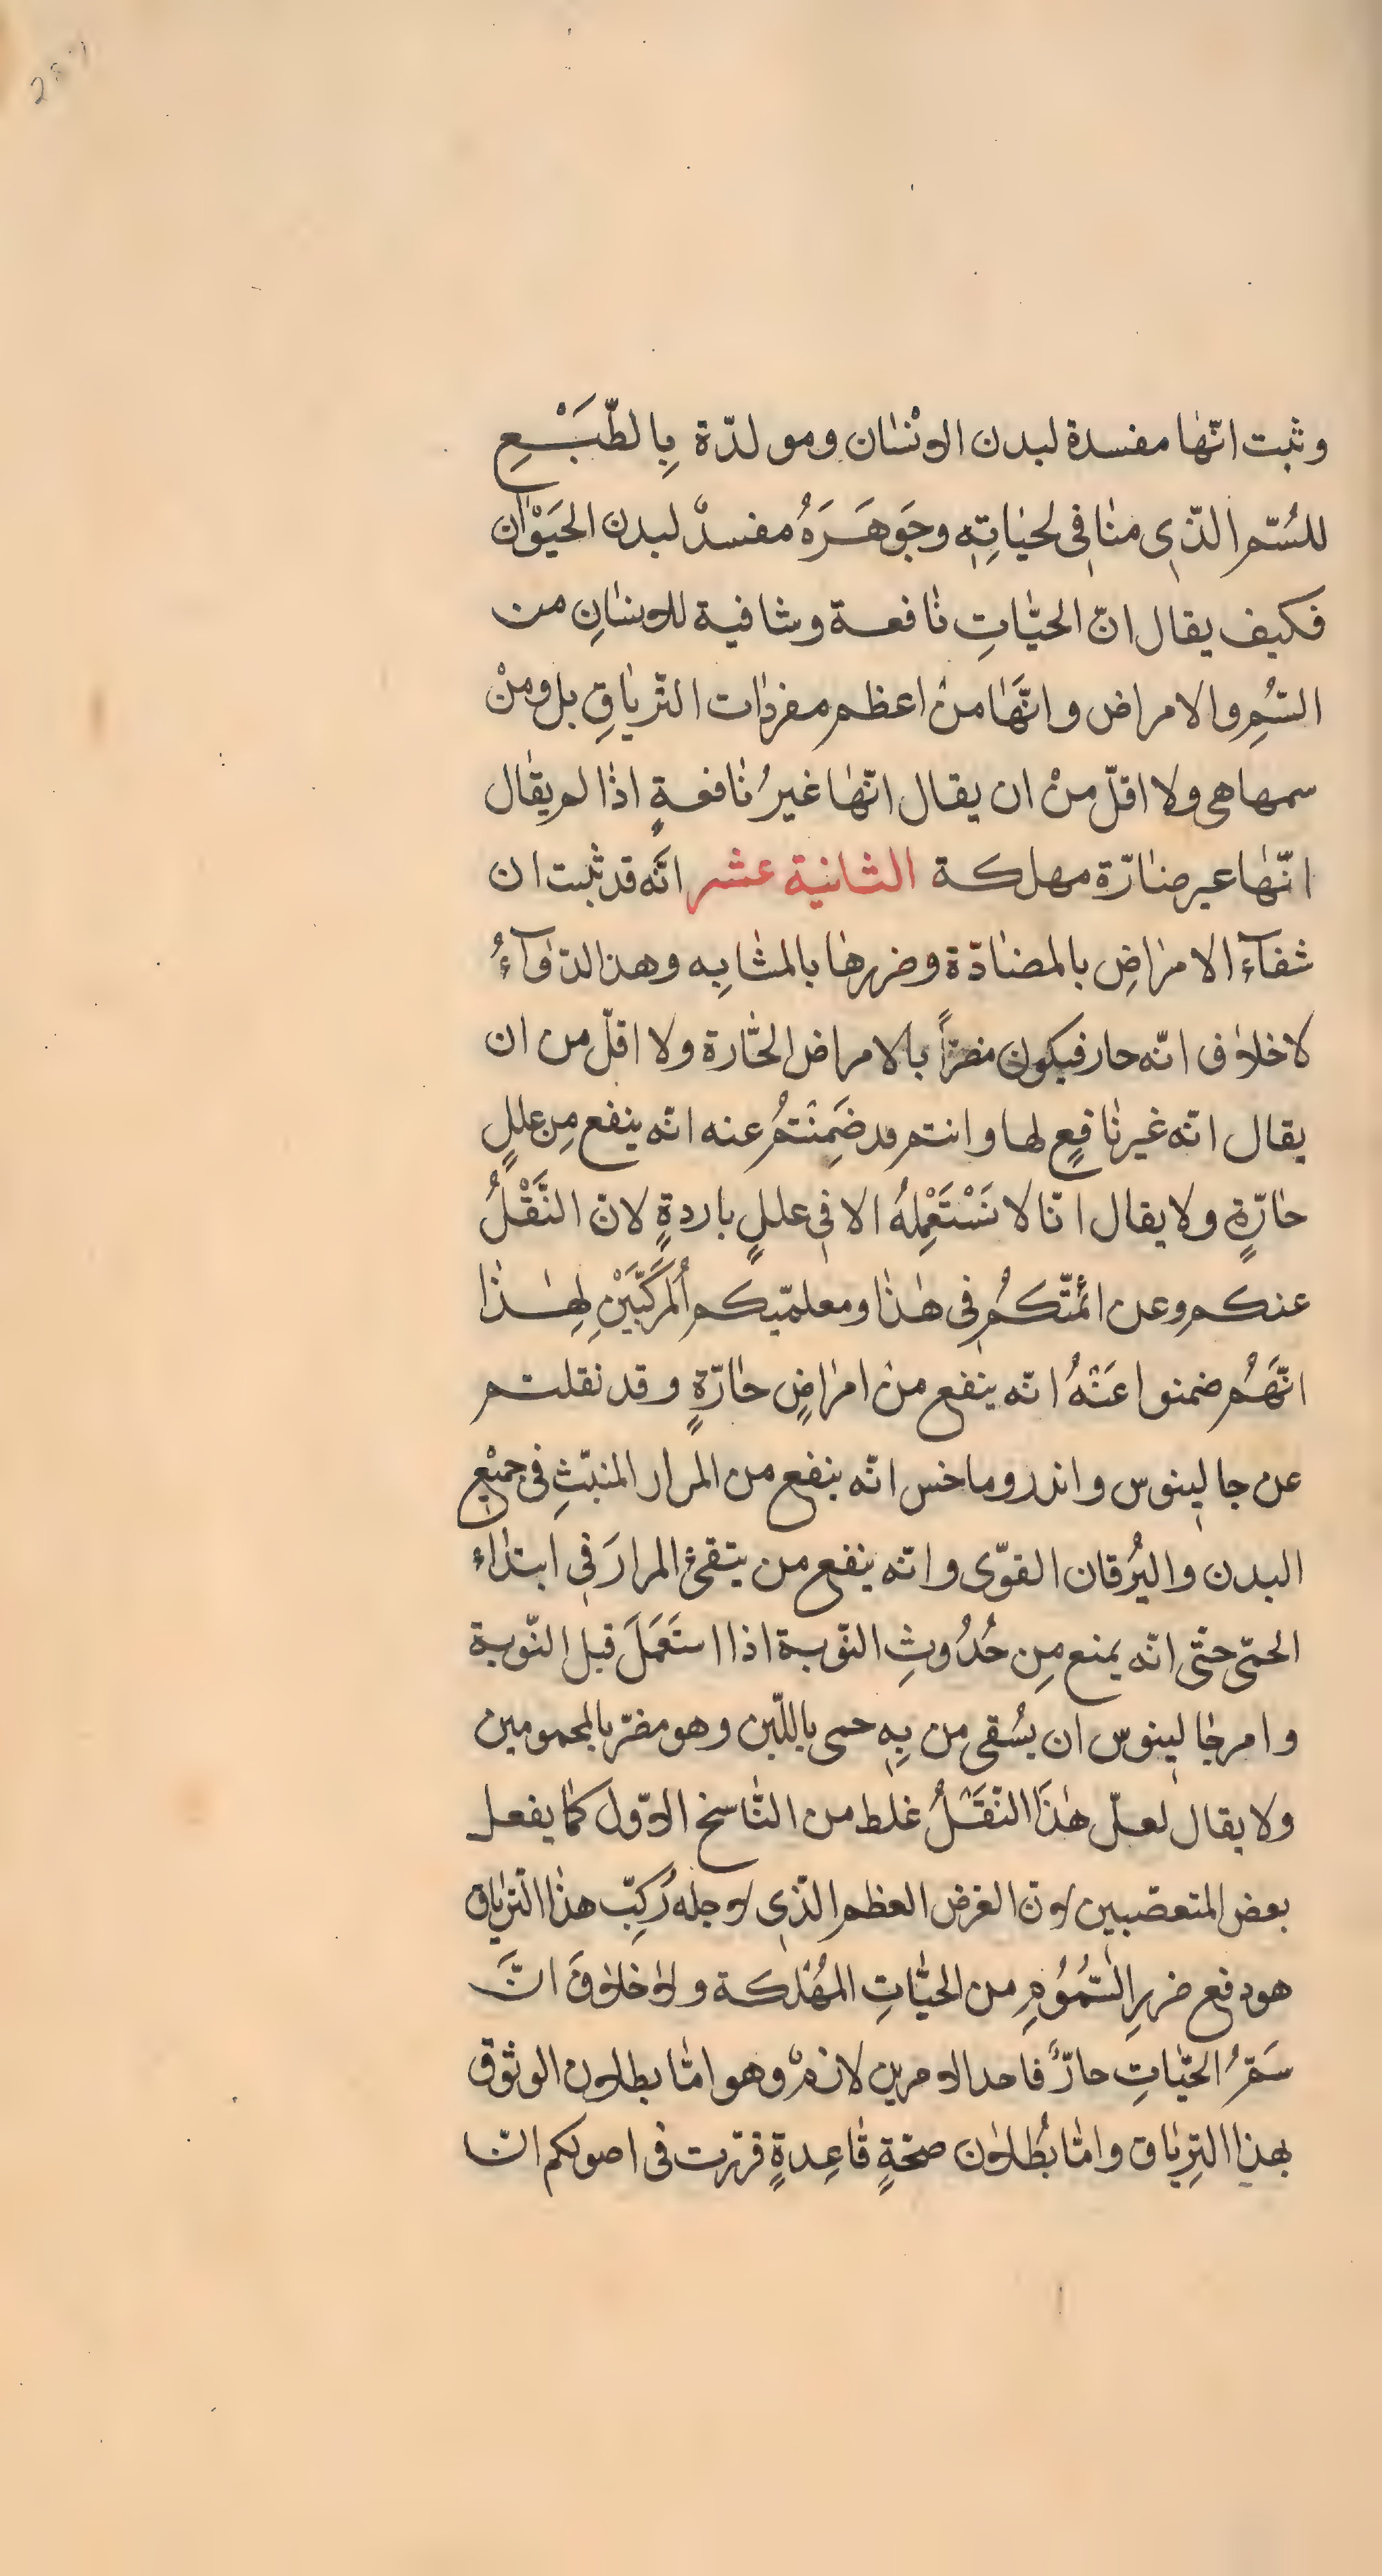 وثبت انّها مفسدة لبدن الانسان ومولدّة بِالطّبَْعِ
للسُمّ الذّي منافي لحياتِهِ وجَوهَرَهُ مفسدٌ لبدن الحَيَوْان
فكيف يقال انّ الحيّاتِ نافعة وشافية للانسانِ من
السُمِ والامراض وانّهَا منْ اعظم مفردات التّرياقِ بل ومنْ
سمها هي ولا اقلّ منْ ان يقال انّها غيرُ نافعةٍ اذا لم يقال
انّها عير ضارّة مهلكة الثانية عشر انّه قد ثبت ان
شفآء الامراضِ بالمضادّة وضررها بالمشابِه وهذ الدّوآءُ
لا خلاف انّه حار فيكون مضرّاً بالامراض الحّارة ولا اقلّ من ان
يقال انّه غير نافعٍ لها وانتم قد ضَمِنْتمُ عنه انّه ينفع مِن عللٍ
حارّةٍ ولا يقال انّا لا نَسْتَعْمِلهُ الا في عللٍ باردةٍ لانّ النَّقْلُ
عنكم وعن ائمّتكمُ في هذا ومعلميّكم اُلمرَكَّبَيْنِ لِهذا
انّهَمُ ضمنوا عَنْهُ انّه ينفع منْ امراضٍ حارّةٍ وقد نقلتم
عن جالينوس واندروماخس انّه ينفع من المرار المنبثّ في جميْعِ
البدن واليُرقان القوّى وانّه ينفع من يتقئ المرارَ في ابتداء
الحمّى حتّى انّه يمنع مِن حُدُوثِ النّوبة اذا استَعَمَلَ قبل النّوبة
وامر جالينوس ان يسُقى من بِهِ حمى باللّبن وهو مضرّ بالمحمومين
ولا يقال لعلّ هذَا النّقَلُْ غلط من النّاسخ الاوّل كما يفعل
بعض المتعصّبين لانّ الغرض العظم الذّي لاجله رُكِبّ هذا التّرياق
هو دفع ضررِ السّمُوُمِ من الحيّاتِ المهُلكة ولا خلافَ انَّ
سَمّرُ الحيّاتِ حارّ فاحد الامرين لازمٌ وهو امّا بطلان الوثوق
بهذا التِرياق وامّا بُطلان صحّةٍ قاعِدةٍ قرّرت في اصولكم انّ